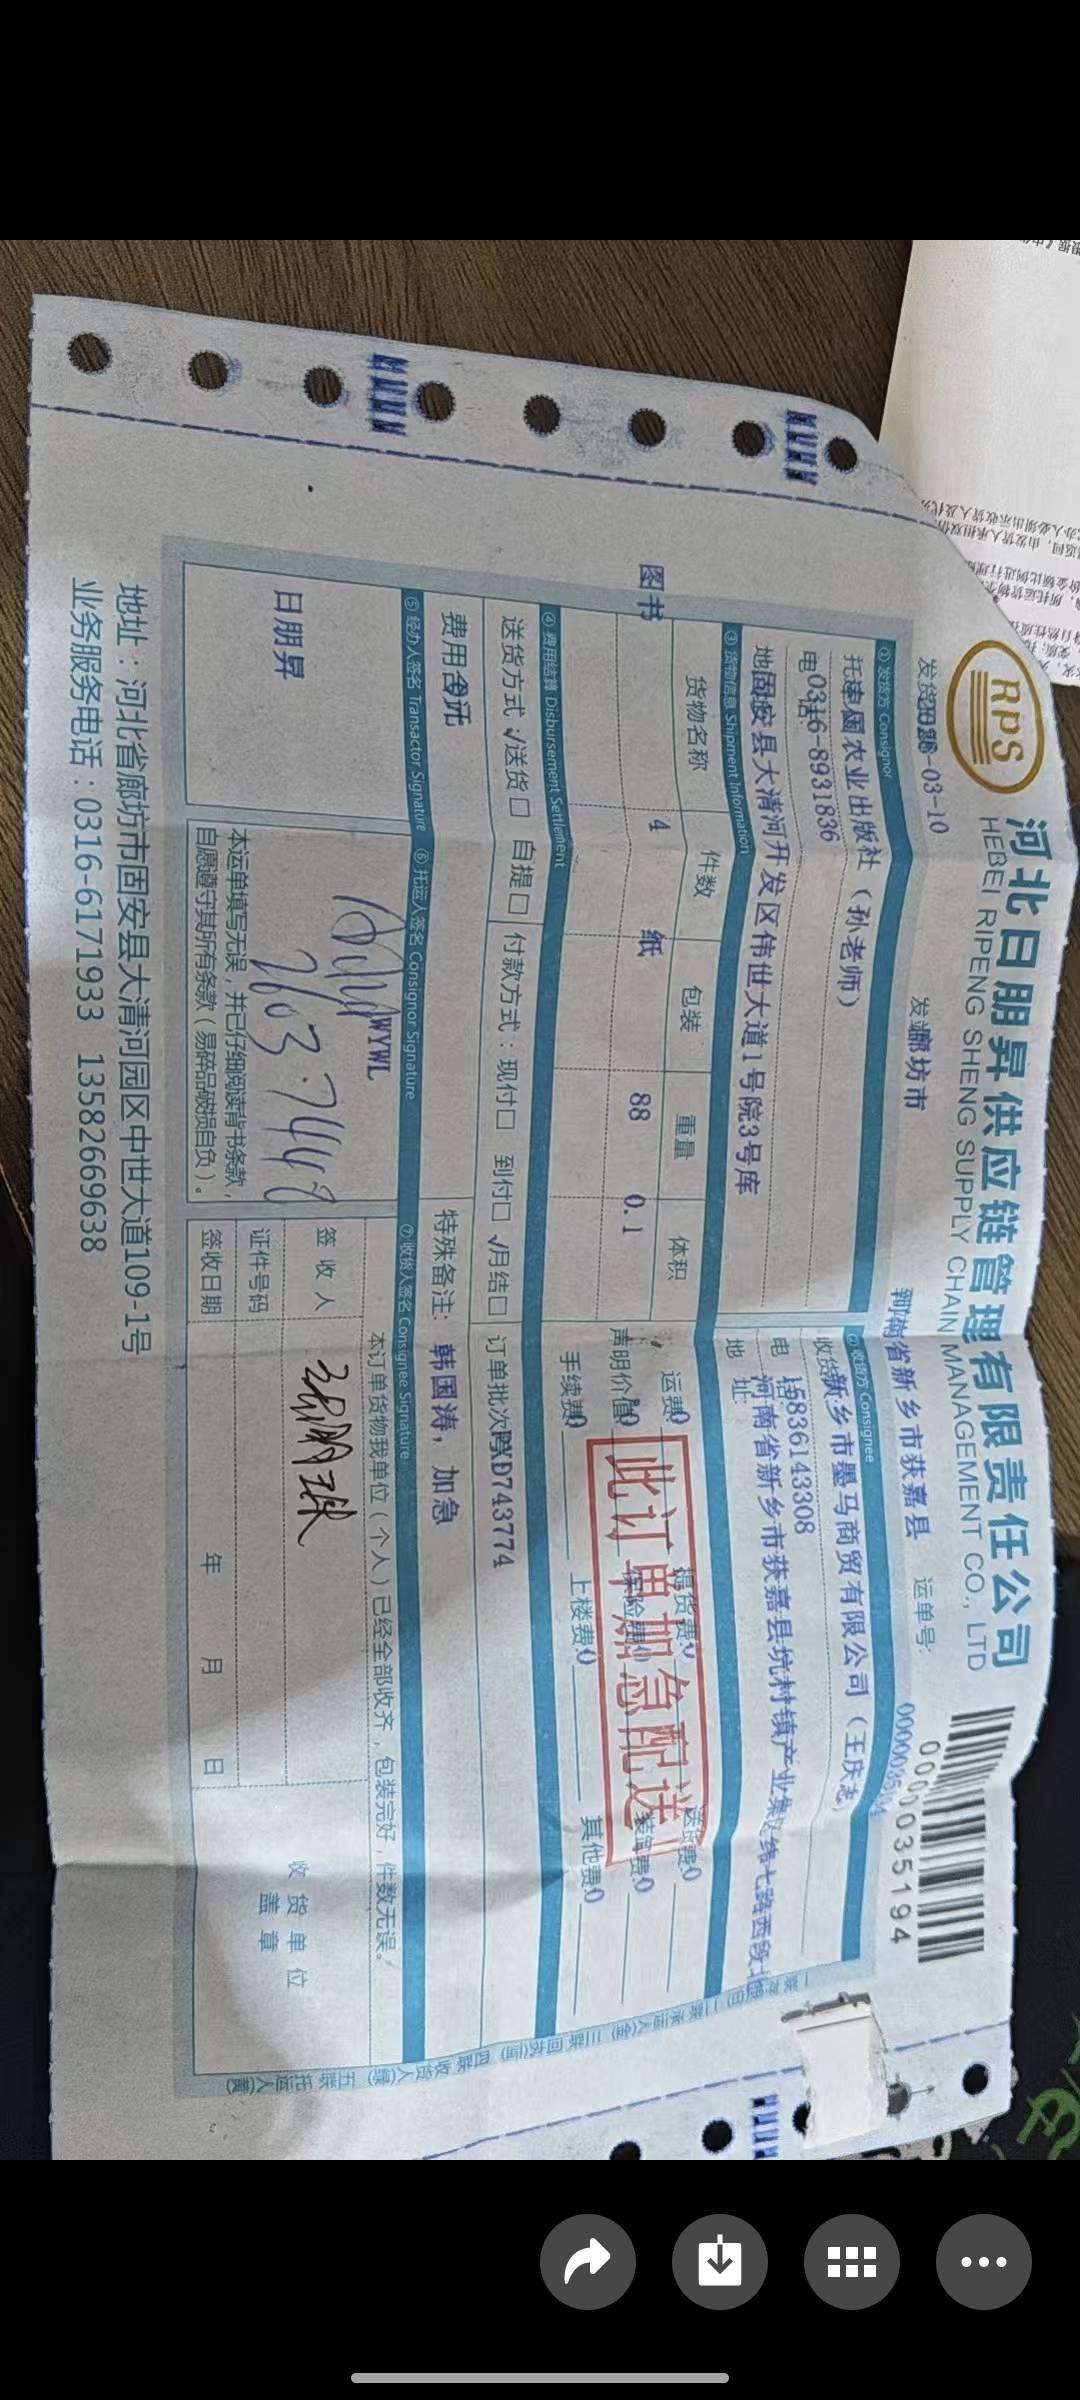 RPS
河北日朋昇供应链管理有限责任公司
HEBEI RIPENG SHENG SUPPLY CHAIN MANAGEMENT CO., LTD
0000035194
-03-10
廊坊市
河南省新乡市获嘉县
运单号:
① 发货方 Consignor
② 收货方 Consignee
农业出版社（孙老师）
新乡市墨马商贸有限公司（王庆志）
0316-8931836
15836143308
固安县大清河开发区伟世大道1号院3号库
河南省新乡市获嘉县坑村镇产业集
③ 货物信息 Shipment Information
货物名称 件数 包装 重量 体积
图书 4 纸 88 0.1
运费0 提货费0 送货费0
声明价值0 保险费0 装卸费0
手续费0 上楼费0 其他费0
此订单加急配送
④ 费用结算 Disbursement Settlement
送货方式 √送货□ 自提□
付款方式：现付□ 到付□ √月结□
订单批次
D743774
费用合计
特殊备注: 韩国涛，加急
⑤ 经办人签名 Transactor Signature
⑥ 托运人签名 Consignor Signature
⑦ 收货人签名 Consignee Signature
日朋昇
WYWL
本订单货物我单位（个人）已经全部收齐，包装完好，件数无误。
签收人
证件号码
签收日期 年 月 日
收货单位
盖章
本运单填写无误，并已仔细阅读背书条款，
自愿遵守其所有条款（易碎品破损自负）。
地址：河北省廊坊市固安县大清河园区中世大道109-1号
业务服务电话：0316-6171933 13582669638